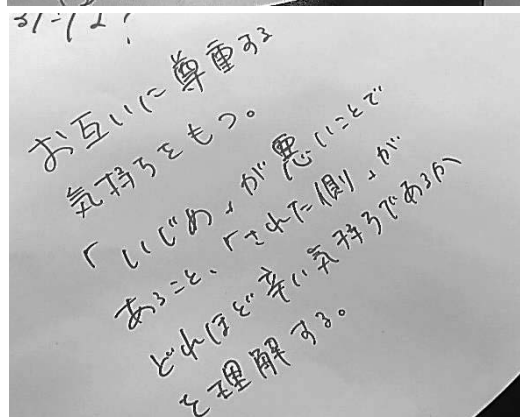 お互いに尊重する
気持ちをもつ。
「いじめ」が悪いことで
あること、「された側」が
どれほど辛い気持ちであるか
を理解する。